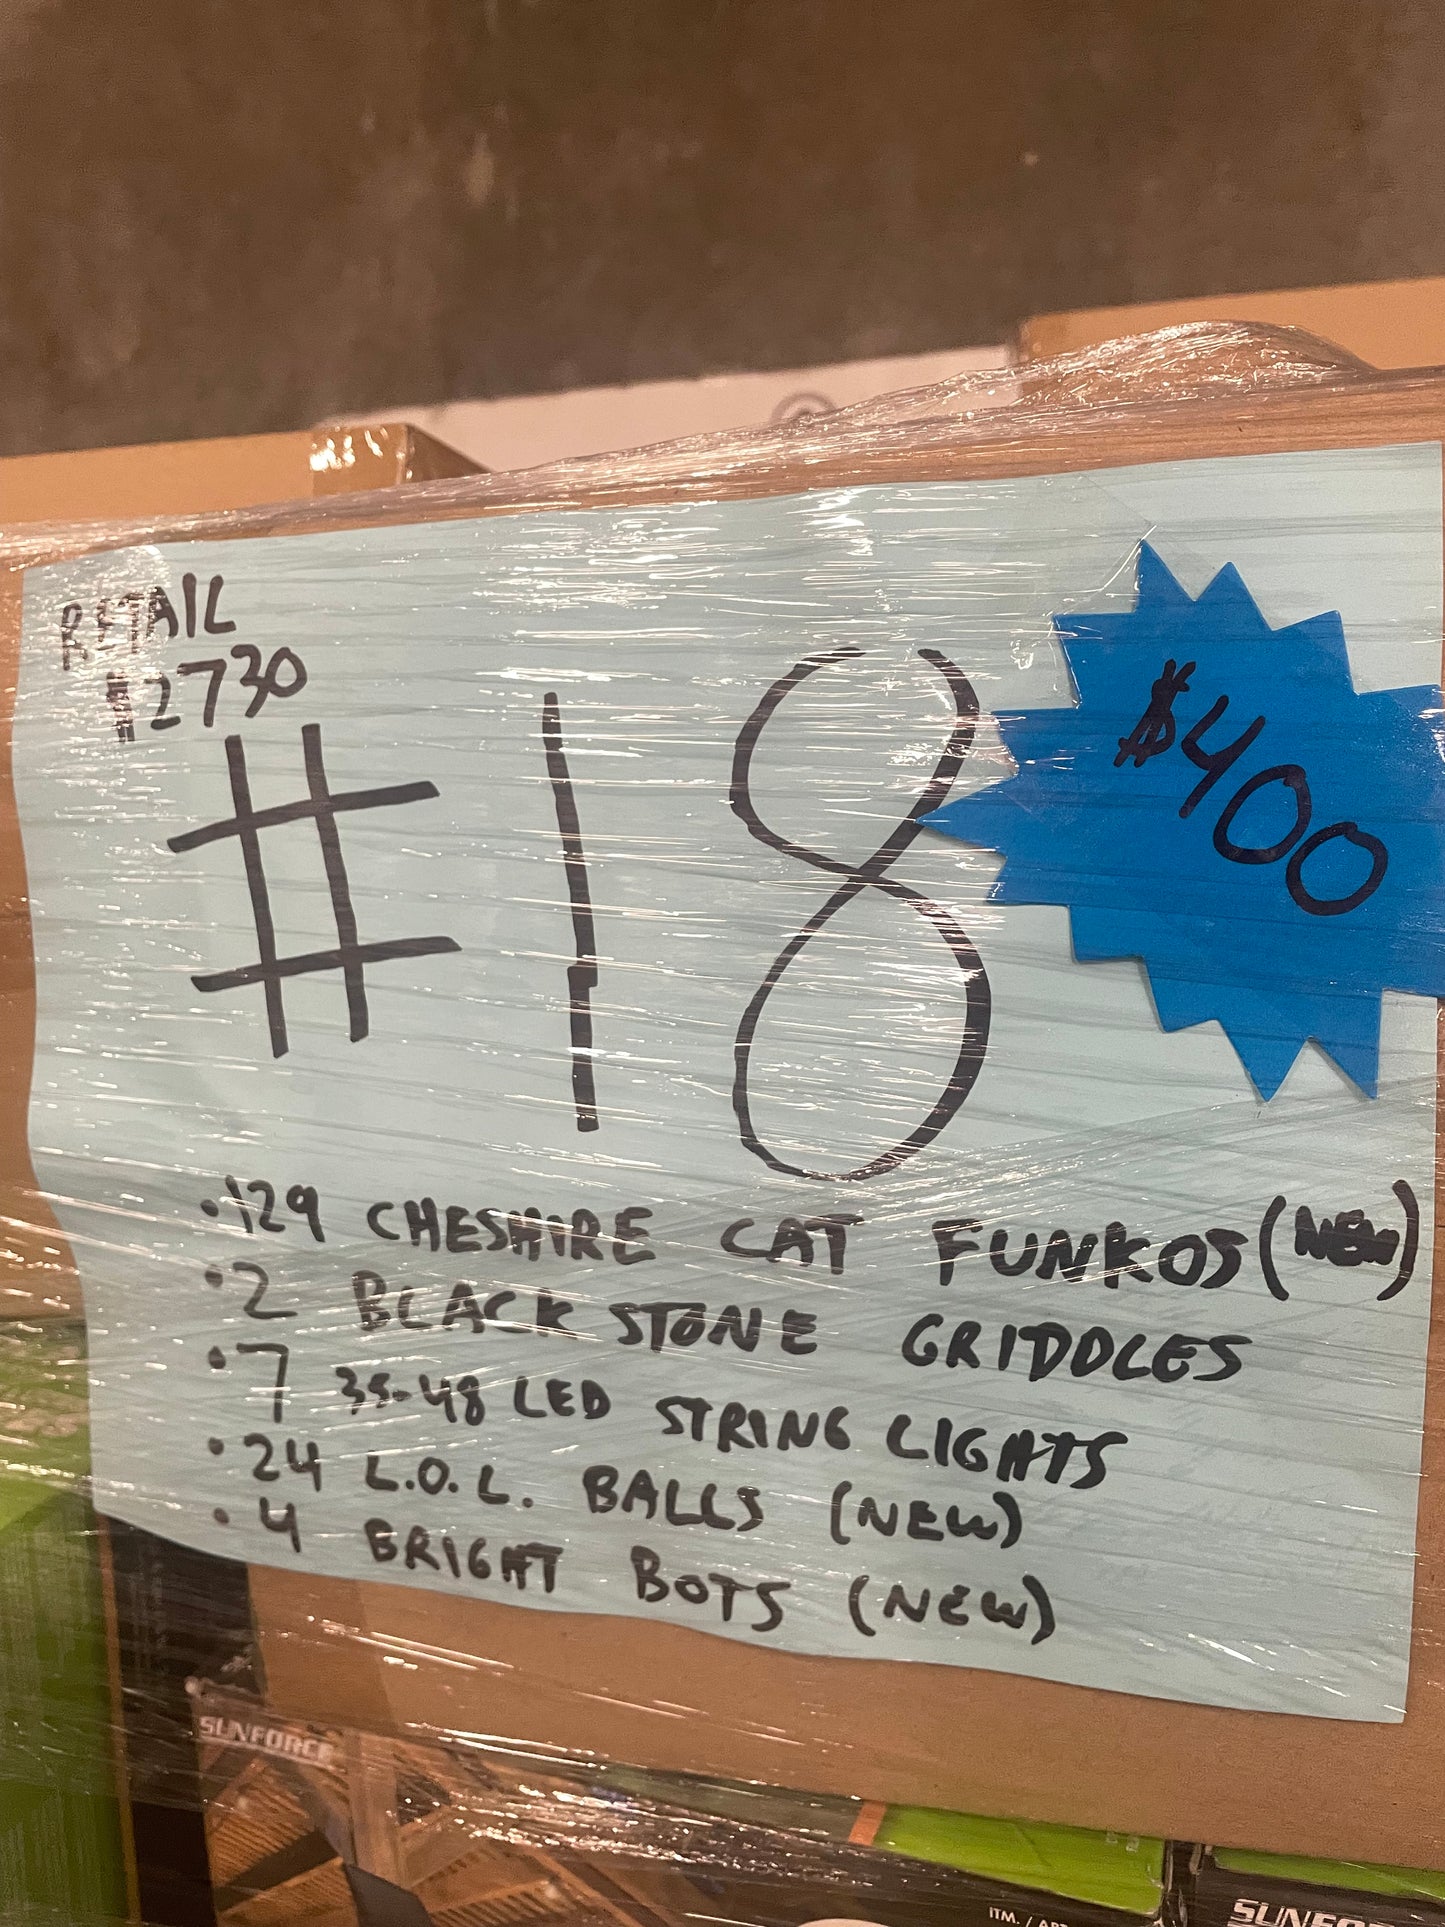 RETAIL
$2730
#18
$400
·129 CHESHIRE CAT FUNKOS (NEW)
·2 BLACKSTONE GRIDDLES
·7 35-48 LED STRING LIGHTS
·24 L.O.L. BALLS (NEW)
·4 BRIGHT BOTS (NEW)
SUNFORCE
ITM. / ART